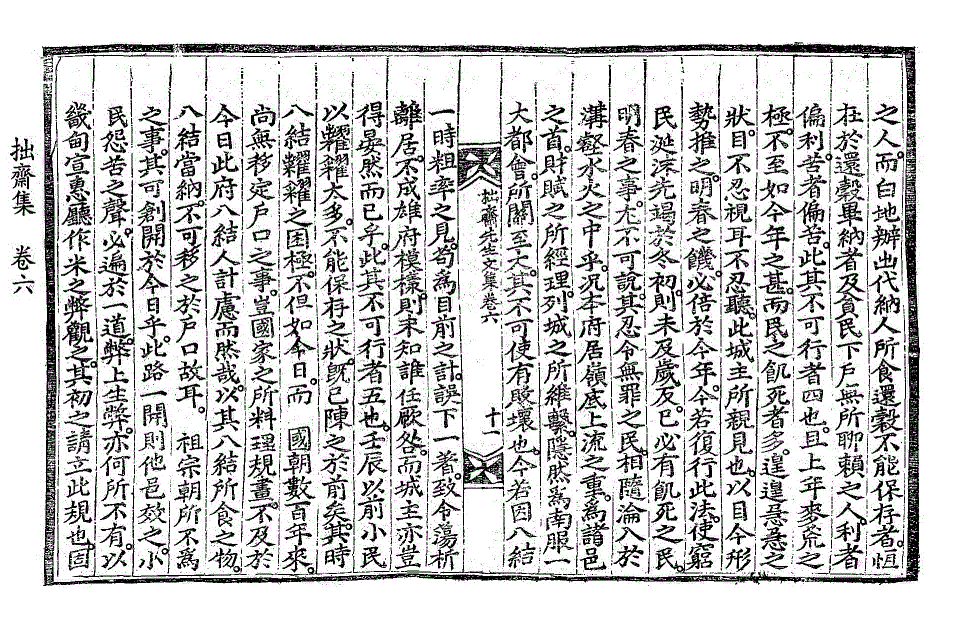 之人。而白地辦出代納人所食還穀不能保存者。恒
在於還穀畢納者及貧民下戶無所聊賴之人。利者
偏利。苦者偏苦。此其不可行者四也。且上年麥荒之
極。不至如今年之甚。而民之飢死者多。遑遑急急之
狀。目不忍視。耳不忍聽。此城主所親見也。以目今形
勢推之。明春之饑。必倍於今年。今若復行此法。使窮
民涎沫先竭於冬初。則未及歲反。已必有飢死之民。
明春之事。尤不可說。其忍令無罪之民。相隨淪入於
溝壑水火之中乎。况本府居嶺底上流之重。爲諸邑
之首。財賦之所經理。列城之所維繫。隱然爲南服一
大都會。所關至大。其不可使有敗壞也。今若因八結
拙齋先生文集卷六
十一
一時粗率之見。苟爲目前之計。誤下一著。致令蕩析
離居。不成雄府模㨾。則未知誰任厥咎。而城主亦豈
得晏然而已乎。此其不可行者五也。壬辰以前小民
以糶糴太多。不能保存之狀。旣已陳之於前矣。其時
八結糶糴之困極。不但如今日。而 國朝數百年來。
尚無移定戶口之事。豈國家之所料理規畫。不及於
今日此府八結人計慮而然哉。以其八結所食之物。
八結當納。不可移之於戶口故耳。 祖宗朝所不爲
之事。其可創開於今日乎。此路一開。則他邑效之。小
民怨苦之聲。必遍於一道。弊上生弊。亦何所不有。以
畿甸宣惠廳作米之弊觀之。其初之請立此規也。固
拙齋集 卷六